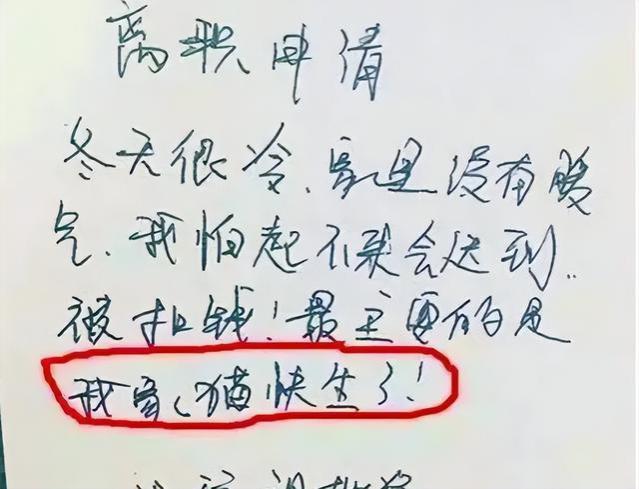 离职申请
冬天很冷、家里没有暖
气、我怕起不来会迟到..
被扣钱！最主要的是
我家心猫快生了！